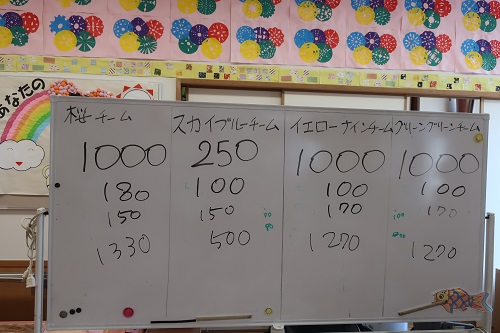 あなたの
桜チーム
1000
180
150
1330
スカイブルーチーム
250
100
150
500
イエローナインチーム
1000
100
170
1270
グリーングリーンチーム
1000
100
170
1270